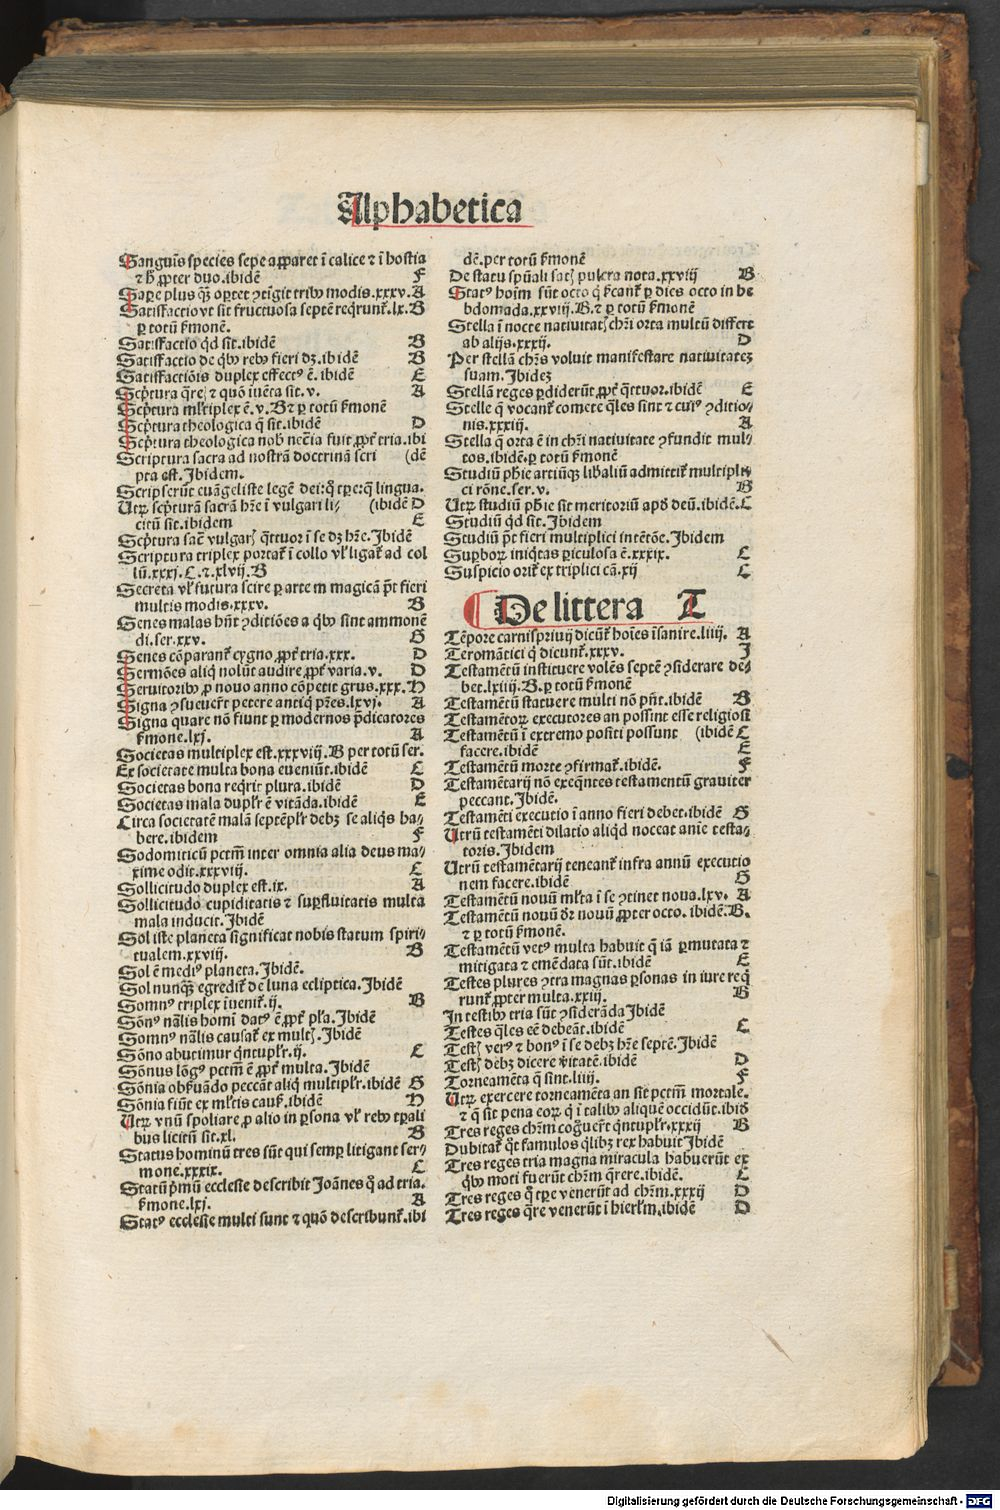 Alphabetica
Sanguīs species sepe apparet ī calice ⁊ ī hostia
⁊ ꝓpter duo.ibidē F
Satiſfactio vt sit fructuosa septē reqͥrunt᷑.lx.B
ꝑ totū ẜmonē.
Satiſfactio qͥd sit.ibidē B
Satiſfactio de qͥbꝰ rebꝰ fieri dꝫ.ibidē B
Satiſfactiōis duplex effectꝰ ē.ibidē E
Scͥptura qͣreꝫ ⁊ quō īuēta sit.v. A
Scͥptura ml̓tiplex ē.v.B⁊ ꝑ totū ẜmonē
Scͥptura theologica qͣ̄ sit.ibidē D
Scͥptura theologica nob̓ necͣia fuit ꝓpt̓ tria.ibi
Scriptura sacra ad nostrā doctrinā scri (dē
pta est.Jbidem.
Scripserūt euāgeliste legē dei:qͦ tꝑe:qͣ lingua.
Utꝝ scͥpturā sacrā hr̄e ī vulgari li⸗ (ibidē D
citū sit.ibidem E
Scͥptura sac̄ vulgarꝫ qͣttuor ī se dꝫ hr̄e.Jbidē
Scriptura triplex portat᷑ ī collo vl̓ ligat᷑ ad col
lū.xxxj.C.⁊.xlvij.B
Secreta vl̓ futura scire ꝑ artem magicā pn̄t fieri
multis modis.xxxv. B
Senes malas hn̄t ꝯditiōes a qͥbꝰ sint ammonē
di.ser.xxv. G
Senes cōparant᷑ cygno ꝓpt̓ tria.xxx. D
Sermōes aliqͥ nolūt audire ꝓpt̓ varia.v. D
Seruitoribꝰ ꝓ nouo anno cōpetit grus.xxx.H
Signa ꝯsueuer̄t petere antiqͥ pr̄es.lxvj. A
Signa quare nō fiunt ꝑ modernos p̄dicatores
ẜmone.lxj. A
Societas multiplex est.xxxviij.B per totū ser.
Ex societate multa bona eueniūt.ibidē C
Societas bona reqͥrit plura.ibidē D
Societas mala dupl̓r ē vitāda.ibidē E
Circa societatē malā septēpl̓r debꝫ se aliqͥs ha⸗
bere.ibidem F
Sodomiticū pctm̄ inter omnia alia deus ma⸗
xime odit.xxxviij. C
Sollicitudo duplex est.ix. A
Sollicitudo cupiditatis ⁊ suꝑfluitatis multa
mala inducit.Jbidē
Sol iste planeta significat nobis statum spiri⸗
tualem.xxviij. B
Sol ē mediꝰ planeta.Jbidē.
Sol nunqͣꝫ egredit᷑ de luna ecliptica.Jbidē
Somnꝰ triplex īuenit᷑.ij. B
Sōnꝰ nāalis homī datꝰ ē ꝓpt̓ pl̓a.Jbidē
Somnꝰ nālis causat᷑ ex multꝫ.Jbidē
Sōno abutimur qͥntupl̓r.ij. C
Sōnus lōgꝰ pctm̄ ē ꝓpt̓ multa.Jbidē
Sōnia obẜuādo peccāt aliqͥ multipl̓r.ibidē G
Sōnia fiūt ex ml̓tis causꝭ.ibidē H
Utꝝ vnū spoliare ꝓ alio in ꝑsona vl̓ rebꝰ tꝑali
bus licitū sit.xl. B
Status hominū tres sūt qui semꝑ litigant ser⸗
mone.xxxix. C
Statū pͥmū ecclesie describit Joānes qͦ ad tria.
ẜmone.lxj. A
Statꝰ ecclesie multi sunt ⁊ quō describunt᷑.ibi
dē.per totū ẜmonē
De statu spūali satꝫ pulcra nota.xxviij B
Statꝰ hoīm sūt octo qͥ ẜcant᷑ ꝑ dies octo in he
bdomada.xxviij.B.⁊ ꝑ totū ẜmonē
Stella ī nocte natiuitatꝫ chr̄i orta multū differt
ab alijs.xxxij. D
Per stellā chr̄s voluit manifestare natiuitateꝫ
suam.Jbideꝫ
Stellā reges ꝑdiderūt ꝓpt̓ qͣttuor.ibidē E
Stelle qͥ vocant᷑ comete qͣles sint ⁊ cuiꝰ ꝯditio⸗
nis.xxxiij. A
Stella qͣ orta ē in chr̄i natiuitate ꝯfundit mul⸗
tos.ibidē.ꝑ totū ẜmonē
Studiū ph̄ie artiūqꝫ lib̓aliū admittit᷑ multipli
ci rōne.ser.v. B
Utꝝ studiū ph̄ie sit meritoriū apd̓ deū.ibidē.C
Studiū qͥd sit.Jbidem
Studiū pn̄t fieri multiplici intētōe.Jbidem
Suꝑborꝝ iniqͥtas ꝑiculosa ē.xxxix. C
Suspicio orit᷑ ex triplici cā.xij C
De littera T
Tēpore carnispriuij dicunt᷑ hoīes īsanire.liiij. A
Teromātici qͥ dicunt᷑.xxxv. J
Testamētū instituere volēs septē ꝯsiderare de⸗
bet.lxiiij.B.ꝑ totū ẜmonē
Testamētū statuere multi nō pn̄t.ibidē B
Testamētoꝝ executores an possint esse religiosi
Testamētū ī extremo positi possunt (ibidē C
facere.ibidē E
Testamētū morte ꝯfirmat᷑.ibidē. F
Testamētarij nō exeqͣntes testamentū grauiter
peccant.Jbidē.
Testamēti executio ī anno fieri debet.ibidē G
Utrū testamēti dilatio aliqͥd noceat anīe testa⸗
toris.Jbidem
Utrū testamētarij teneant᷑ infra annū executio
nem facere.ibidē G
Testamētū nouū ml̓ta ī se ꝯtinet noua.lxv. A
Testamētū nouū dr̄ nouū ꝓpter octo.ibidē.B.
⁊ ꝑ totū ẜmonē.
Testamētū vetꝰ multa habuit qͣ iā ꝑmutata ⁊
mitigata ⁊ emēdata sūt.ibidē E
Testes plures ꝯtra magnas ꝑsonas in iure reqͥ
runt᷑ ꝓpter multa.xxiij. B
In testibꝰ tria sūt ꝯsiderāda Jbidē
Testes qͣles eē debeāt.ibidē C
Testꝫ verꝰ ⁊ bonꝰ ī se debꝫ hr̄e septē.Jbidē
Testꝫ debꝫ dicere v̓itatē.ibidē D
Torneamēta qͣ sint.liiij. F
Utꝝ exercere torneamēta an sit pctm̄ mortale.
⁊ qͣ sit pena eoꝝ qͥ ī talibꝰ aliquē occidūt.ibid̓
Tres reges chr̄m cog̓uer̄t qͥntupl̓r.xxxij B
Dubitat᷑ qͦt famulos qͥlibꝫ rex habuit Jbidē
Tres reges tria magna miracula habuerūt ex
qͥbꝰ moti fuerūt chr̄m qͣrere.ibidē. C
Tres reges qͦ tꝑe venerūt ad chr̄m.xxxij D
Tres reges qͣre venerūt ī hierl̓m.ibidē D
Digitalisierung gefördert durch die Deutsche Forschungsgemeinschaft - DFG